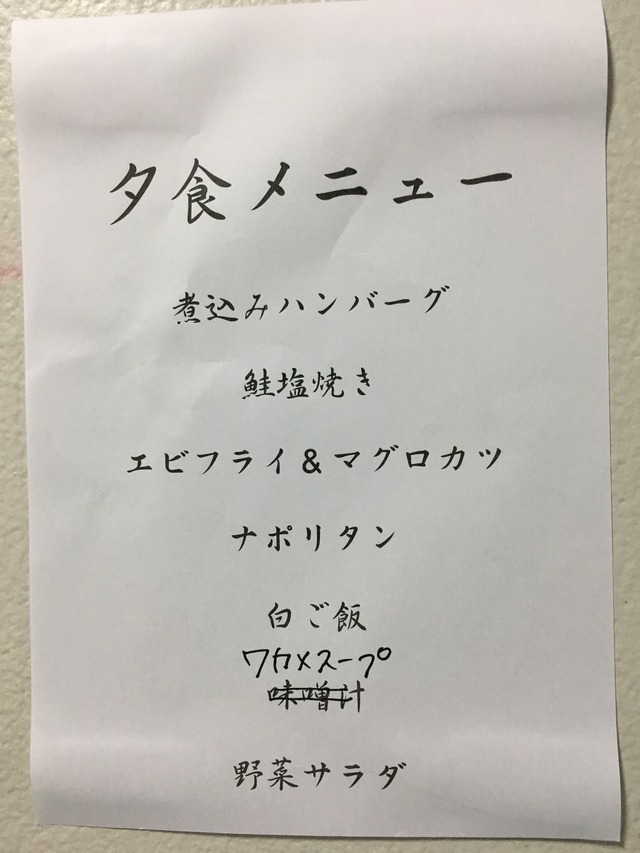 夕食メニュー
煮込みハンバーグ
鮭塩焼き
エビフライ＆マグロカツ
ナポリタン
白ご飯
ワカメスープ
味噌汁
野菜サラダ